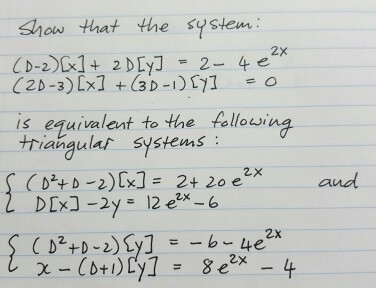 Show that the system:
(D-2)[x] + 2D[y] = 2 - 4e^{2x}
(2D-3)[x] + (3D-1)[y] = 0
is equivalent to the following
triangular systems:
{ (D²+D-2)[x] = 2+20e^{2x} and
D[x] - 2y = 12e^{2x} - 6
{ (D²+D-2)[y] = -6-4e^{2x}
x - (D+1)[y] = 8e^{2x} - 4